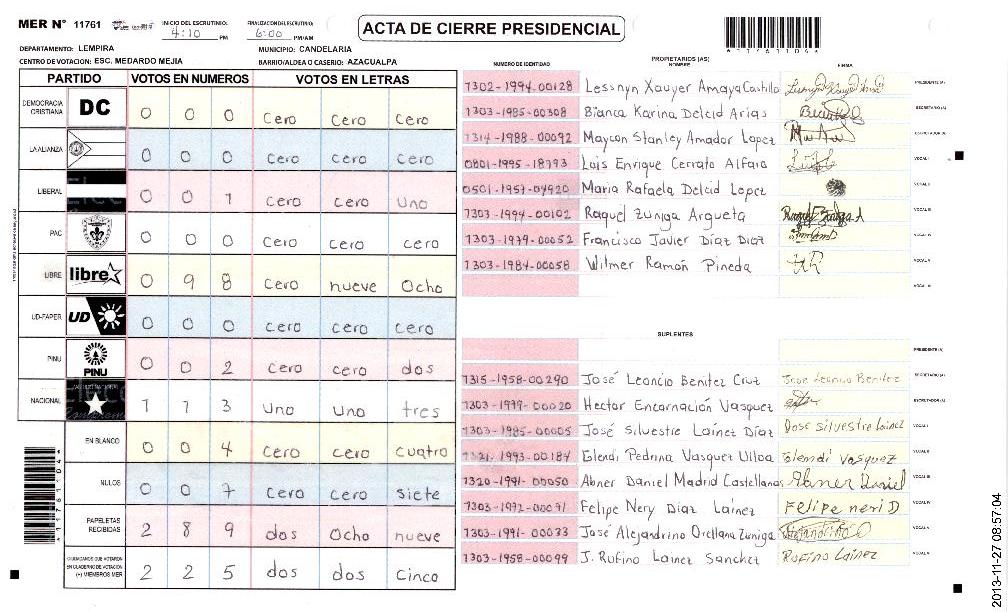 MER N° 11761
INICIO DEL ESCRUTINIO: 4:10 PM
FINALIZACION DEL ESCRUTINIO: 6:00 PM/AM
ACTA DE CIERRE PRESIDENCIAL
DEPARTAMENTO: LEMPIRA
MUNICIPIO: CANDELARIA
CENTRO DE VOTACION: ESC. MEDARDO MEJIA
BARRIO/ALDEA O CASERIO: AZACUALPA
PARTIDO VOTOS EN NUMEROS VOTOS EN LETRAS
DEMOCRACIA CRISTIANA DC 0 0 0 Cero Cero Cero
LA ALIANZA 0 0 0 Cero Cero Cero
LIBERAL 0 0 1 Cero Cero Uno
PAC 0 0 0 Cero Cero cero
LIBRE libre 0 9 8 Cero nueve Ocho
UD-FAPER UD 0 0 0 Cero Cero Cero
PINU PINU 0 0 2 Cero Cero dos
NACIONAL 1 1 3 Uno Uno tres
EN BLANCO 0 0 4 Cero Cero cuatro
NULOS 0 0 7 Cero Cero Siete
PAPELETAS RECIBIDAS 2 8 9 dos Ocho nueve
CIUDADANOS QUE VOTARON EN CUADERNO DE VOTACION (+) MIEMBROS MER 2 2 5 dos dos Cinco
PROPIETARIOS (AS)
NUMERO DE IDENTIDAD NOMBRE FIRMA
1302-1994-00128 Lessnyn Xauyer Amaya Castillo PRESIDENTE (A)
1303-1985-00308 Bianca Karina Delcid Arias SECRETARIO (A)
1314-1988-00092 Maycon Stanley Amador Lopez ESCRUTADOR (A)
0801-1995-18793 Luis Enrique Cerrato Alfaro VOCAL I
0501-1957-04920 Maria Rafaela Delcid Lopez VOCAL II
1303-1994-00102 Raquel Zuniga Argueta VOCAL III
1303-1979-00052 Francisco Javier Diaz Diaz VOCAL IV
1303-1984-00058 Wilmer Ramón Pineda VOCAL V
VOCAL VI
SUPLENTES
PRESIDENTE (A)
1315-1958-00290 José Leoncio Benitez Cruz Jose Leoncio Benitez SECRETARIO (A)
1303-1979-00020 Hector Encarnación Vasquez ESCRUTADOR (A)
1303-1985-00005 José Silvestre Laínez Díaz Jose Silvestre Lainez VOCAL I
1321-1993-00184 Glendi Pedrina Vasquez Ulloa Glendi Vasquez VOCAL II
1320-1991-00050 Abner Daniel Madrid Castellanos Abner Daniel VOCAL III
1303-1972-00071 Felipe Nery Diaz Laínez Felipe neri D VOCAL IV
1303-1991-00033 José Alejandrino Orellana Zuniga VOCAL V
1303-1958-00099 J. Rufino Lainez Sanchez Rufino Lainez VOCAL VI
2013-11-27 08:57:04